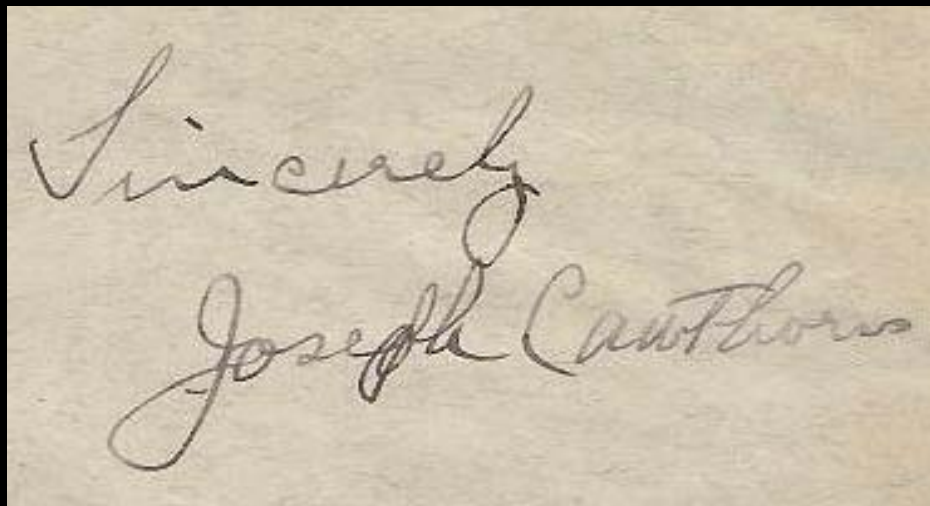 Sincerely
Joseph Cawthorn